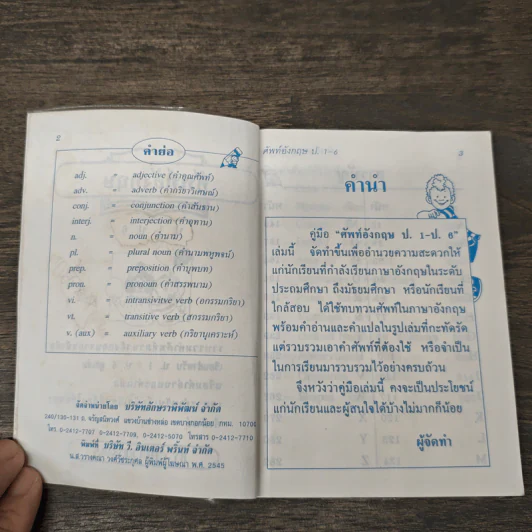 2
คำย่อ
adj. = adjective (คำคุณศัพท์)
adv. = adverb (คำกริยาวิเศษณ์)
conj. = conjunction (คำสันธาน)
interj. = interjection (คำอุทาน)
n. = noun (คำนาม)
pl. = plural noun (คำนามพหูพจน์)
prep. = preposition (คำบุพบท)
pron. = pronoun (คำสรรพนาม)
vi. = intransivitve verb (อกรรมกริยา)
vt. = transitive verb (สกรรมกริยา)
v. (aux) = auxiliary verb (กริยานุเคราะห์)
จัดจำหน่ายโดย บริษัทอักษราพิพัฒน์ จำกัด
240/130-131 ถ. จรัญสนิทวงศ์ แขวงบ้านช่างหล่อ เขตบางกอกน้อย กทม. 10700
โทร. 0-2412-7707, 0-2412-7709, 0-2412-5070 โทรสาร 0-2412-7710
พิมพ์ที่ บริษัท วี. อินเตอร์ พริ้นท์ จำกัด
น.ส.วรางคณา วงศ์วีระกุล ผู้พิมพ์ผู้โฆษณา พ.ศ. 2545
ศัพท์อังกฤษ ป. 1-6
3
คำนำ
คู่มือ "ศัพท์อังกฤษ ป. 1-ป. 6"
เล่มนี้ จัดทำขึ้นเพื่ออำนวยความสะดวกให้
แก่นักเรียนที่กำลังเรียนภาษาอังกฤษในระดับ
ประถมศึกษา ถึงมัธยมศึกษา หรือนักเรียนที่
ใกล้สอบ ได้ใช้ทบทวนศัพท์ในภาษาอังกฤษ
พร้อมคำอ่านและคำแปลในรูปเล่มที่กะทัดรัด
แต่รวบรวมเอาคำศัพท์ที่ต้องใช้ หรือจำเป็น
ในการเรียนมารวบรวมไว้อย่างครบถ้วน
จึงหวังว่าคู่มือเล่มนี้ คงจะเป็นประโยชน์
แก่นักเรียนและผู้สนใจได้บ้างไม่มากก็น้อย
ผู้จัดทำ